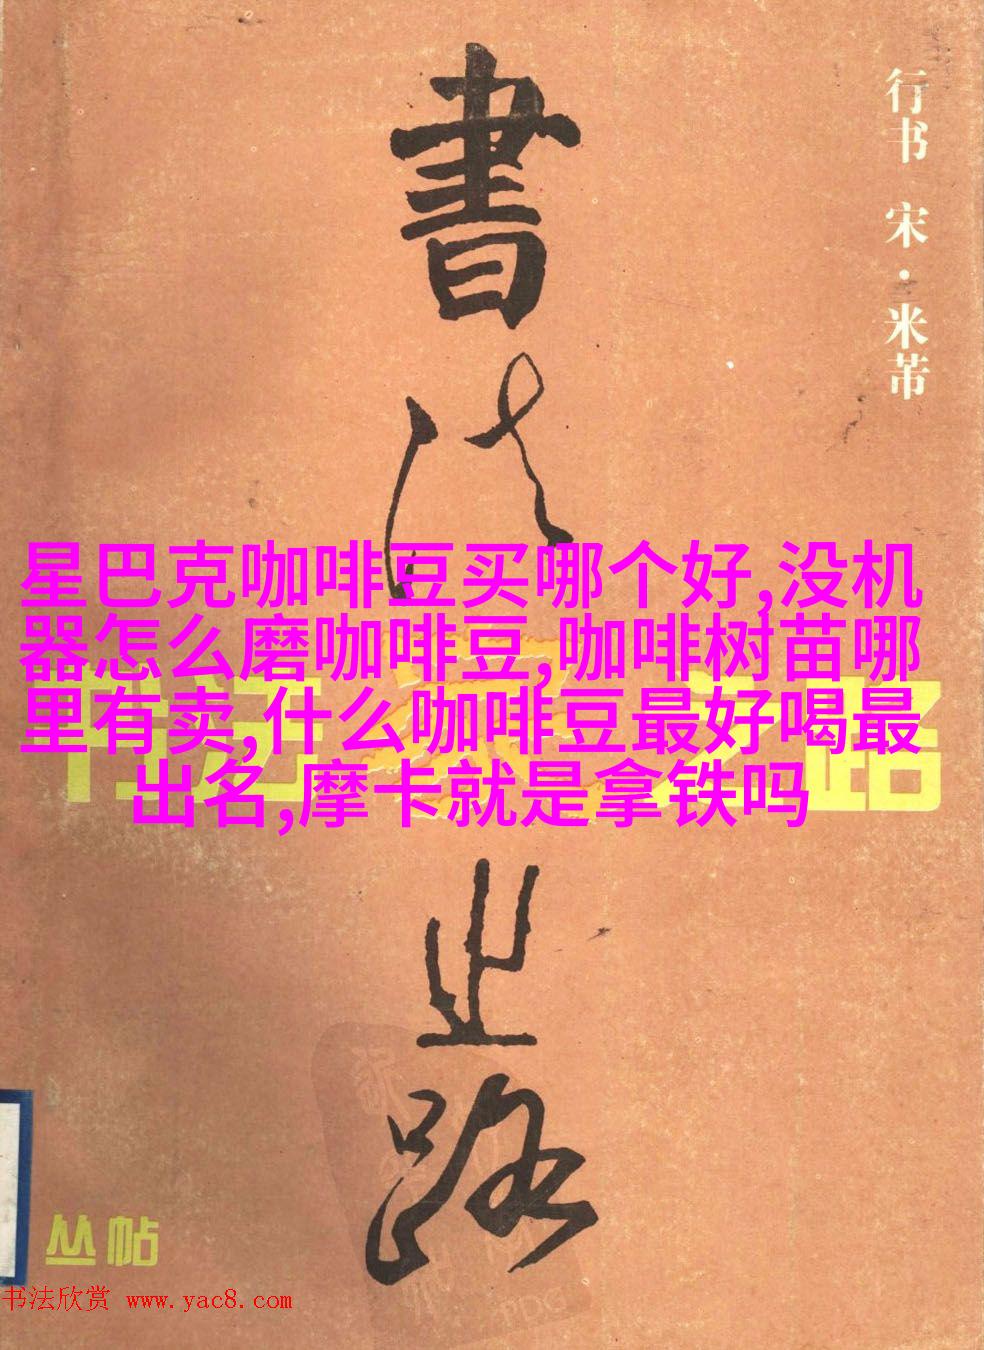 書法之路
行书 宋·米芾
星巴克咖啡豆买哪个好,没机
器怎么磨咖啡豆,咖啡树苗哪
里有卖,什么咖啡豆最好喝最
出名,摩卡就是拿铁吗
之路
丛帖
书法欣赏 www.yac8.com